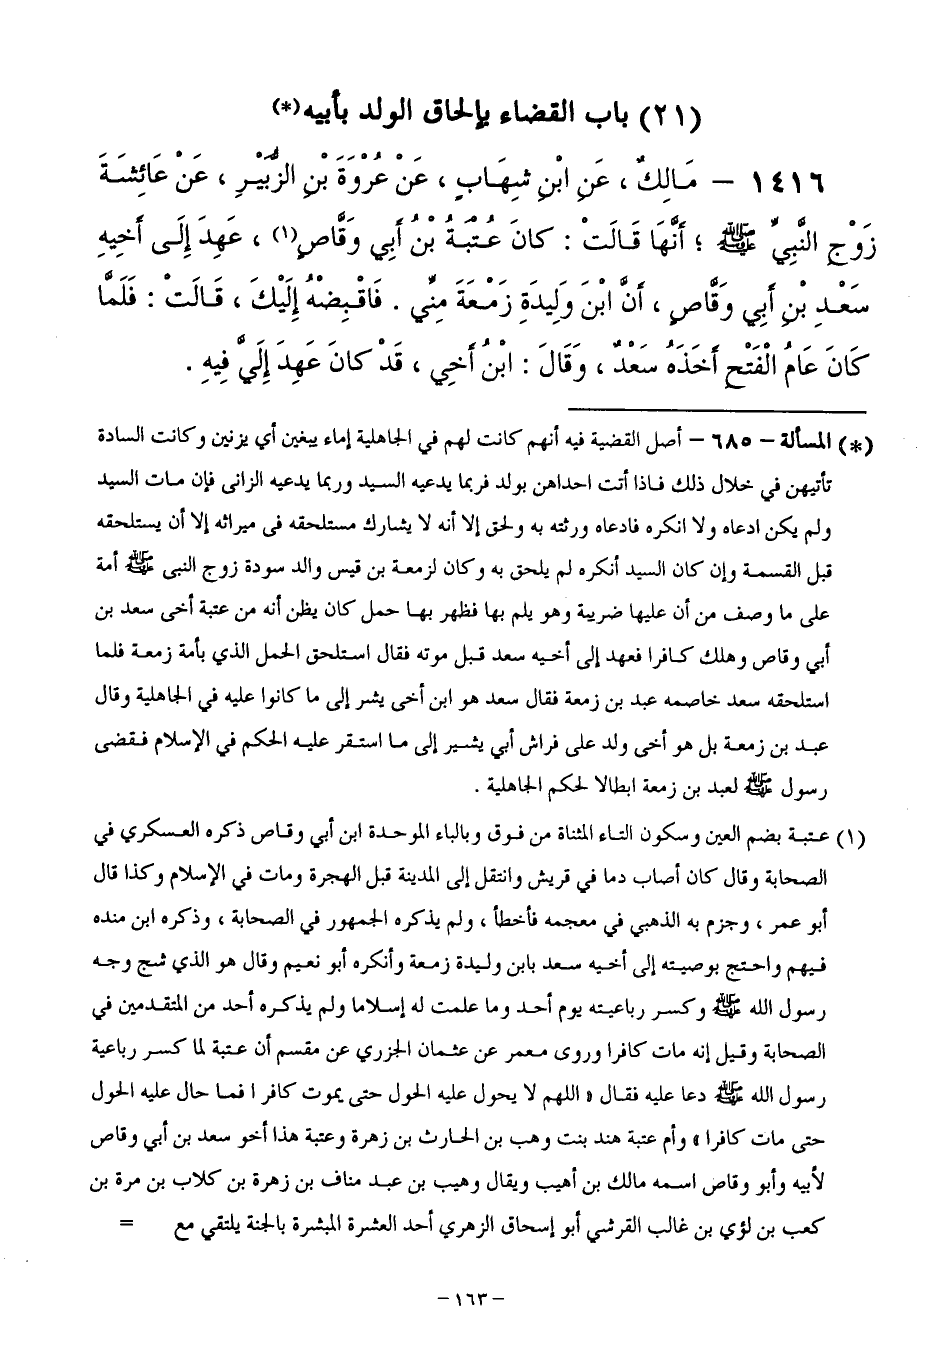 (٢١) باب القضاء بإلحاق الولد بأبيه(*)
١٤١٦ – مَالِكٌ ، عَنِ ابْنِ شِهَابٍ ، عَنْ عُرْوَةَ بْنِ الزُّبَيْرِ ، عَنْ عَائِشَةَ
زَوْجِ النَّبِيِّ ﷺ ؛ أَنَّهَا قَالَتْ : كَانَ عُتْبَةُ بْنُ أَبِي وَقَّاصٍ(١) ، عَهِدَ إِلَى أَخِيهِ
سَعْدِ بْنِ أَبِي وَقَّاصٍ ، أَنَّ ابْنَ وَلِيدَةِ زَمْعَةَ مِنِّي . فَاقْبِضْهُ إِلَيْكَ ، قَالَتْ : فَلَمَّا
كَانَ عَامُ الْفَتْحِ أَخَذَهُ سَعْدٌ ، وَقَالَ : ابْنُ أَخِي ، قَدْ كَانَ عَهِدَ إِلَيَّ فِيهِ .
(*) المسألة – ٦٨٥ – أصل القضية فيه أنهم كانت لهم في الجاهلية إماء يبغين أي يزنين وكانت السادة
تأتيهن في خلال ذلك فاذا أتت احداهن بولد فربما يدعيه السيد وربما يدعيه الزانى فإن مات السيد
ولم يكن ادعاه ولا انكره فادعاه ورثته به ولحق إلا أنه لا يشارك مستلحقه فى ميراثه إلا أن يستلحقه
قبل القسمة وإن كان السيد أنكره لم يلحق به وكان لزمعة بن قيس والد سودة زوج النبى ﷺ أمة
على ما وصف من أن عليها ضريبة وهو يلم بها فظهر بها حمل كان يظن أنه من عتبة أخى سعد بن
أبي وقاص وهلك كافرا فعهد إلى أخيه سعد قبل موته فقال استلحق الحمل الذي بأمة زمعة فلما
استلحقه سعد خاصمه عبد بن زمعة فقال سعد هو ابن أخى يشر إلى ما كانوا عليه في الجاهلية وقال
عبد بن زمعة بل هو أخى ولد على فراش أبي يشير إلى ما استقر عليه الحكم في الإسلام فقضى
رسول ﷺ لعبد بن زمعة ابطالا لحكم الجاهلية .
(١) عتبة بضم العين وسكون التاء المثناة من فوق وبالباء الموحدة ابن أبي وقاص ذكره العسكري في
الصحابة وقال كان أصاب دما في قريش وانتقل إلى المدينة قبل الهجرة ومات في الإسلام وكذا قال
أبو عمر ، وجزم به الذهبي في معجمه فأخطأ ، ولم يذكره الجمهور في الصحابة ، وذكره ابن منده
فيهم واحتج بوصيته إلى أخيه سعد بابن وليدة زمعة وأنكره أبو نعيم وقال هو الذي شج وجه
رسول الله ﷺ وكسر رباعيته يوم أحد وما علمت له إسلاما ولم يذكره أحد من المتقدمين في
الصحابة وقيل إنه مات كافرا وروى معمر عن عثمان الجزري عن مقسم أن عتبة لما كسر رباعية
رسول الله ﷺ دعا عليه فقال « اللهم لا يحول عليه الحول حتى يموت كافر ا فما حال عليه الحول
حتى مات كافرا » وأم عتبة هند بنت وهب بن الحارث بن زهرة وعتبة هذا أخو سعد بن أبي وقاص
لأبيه وأبو وقاص اسمه مالك بن أهيب ويقال وهيب بن عبد مناف بن زهرة بن كلاب بن مرة بن
كعب بن لؤي بن غالب القرشي أبو إسحاق الزهري أحد العشرة المبشرة بالجنة يلتقي مع =
– ١٦٣ –